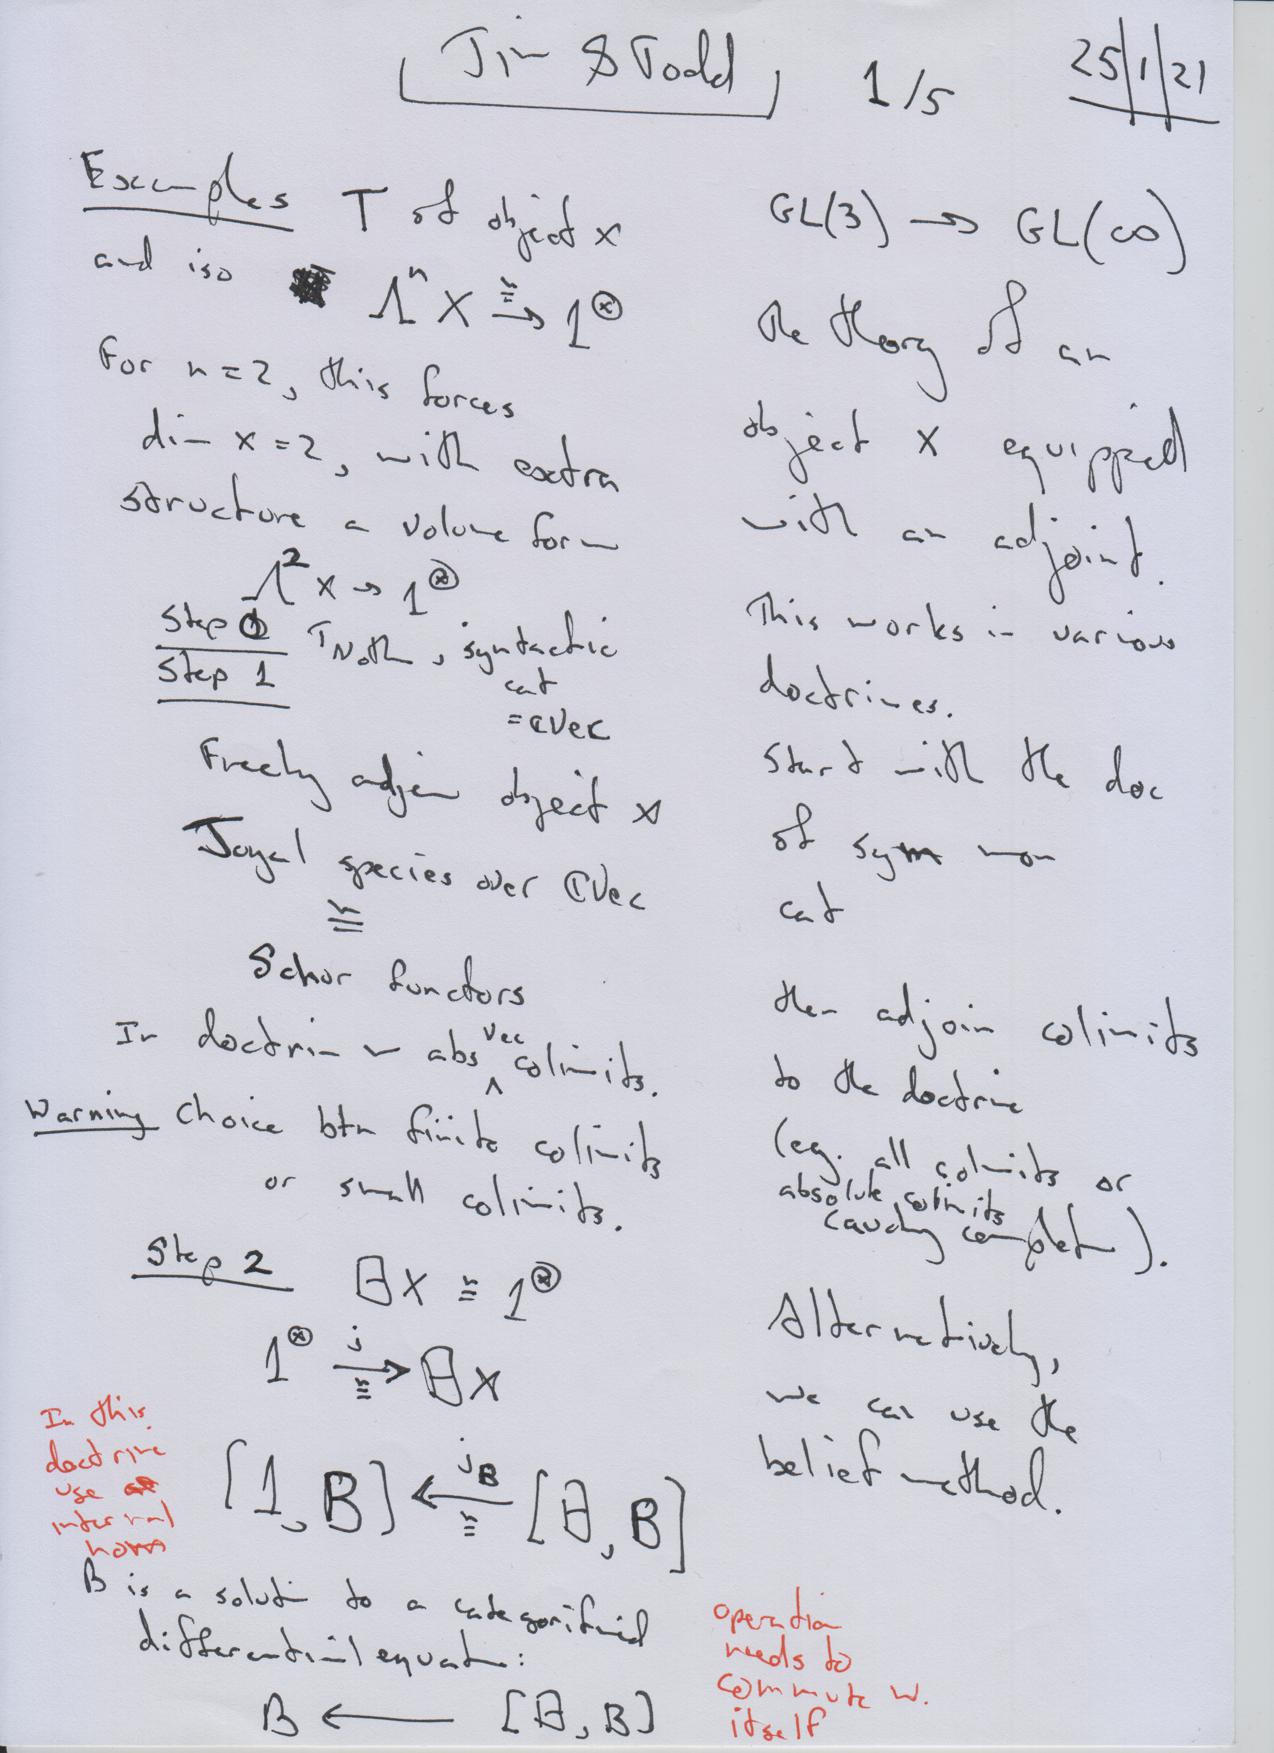 Jim & Todd 1/5 25/1/21
Examples T of object x
and iso Λⁿ X ≅→ 1^⊗
For n=2, this forces
dim x=2, with extra
structure a volume form
Λ² x → 1^⊗
Step 0 T Noth, syntactic
cat
= ℂVec
Step 1
Freely adjoin object x
Joyal species over ℂVec
≅
Schur functors
In doctrin abs Vec colimits.
Warning Choice btn finite colimits
or small colimits.
Step 2 ∃x ≅ 1^⊗
1^⊗ j ≅→ ∃x
In this
doctrine
use
internal
homs
[1, B] ←≅ j_B [∃, B]
B is a soluti to a categorified
differential equati:
B ← [∃, B]
GL(3) → GL(∞)
the theory of an
object x equipped
with an adjoint.
This works in various
doctrines.
Start with the doc
of sym mon
cat
then adjoin colimits
to the doctrine
(eg. all colimits or
absolute colimits
cauchy complet).
Alternatively,
we can use the
belief method.
operation
needs to
commute w.
itself